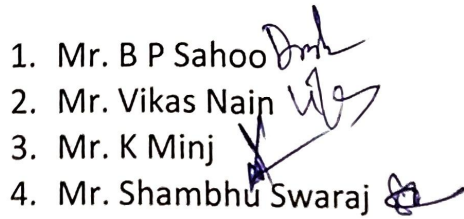 1. Mr. B P Sahoo
2. Mr. Vikas Nain
3. Mr. K Minj
4. Mr. Shambhu Swaraj